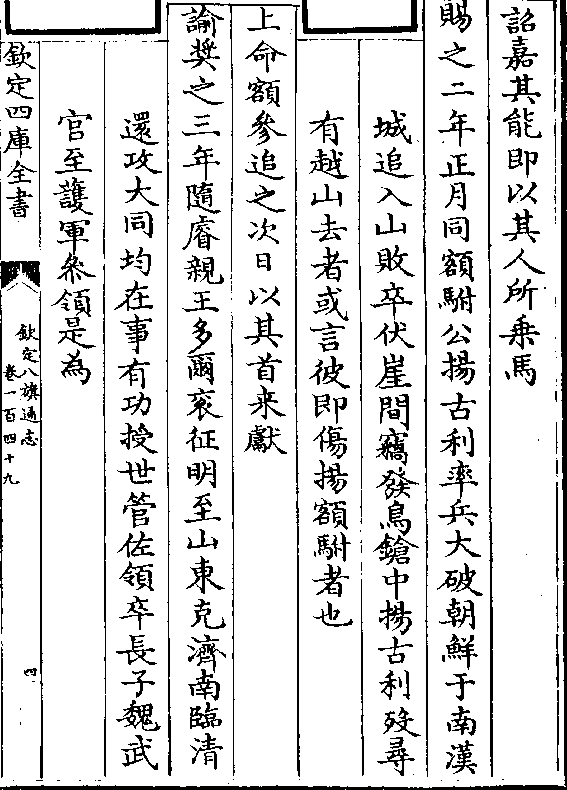 詔嘉其能即以其人所乗馬
賜之二年正月同額駙公揚古利率兵大破朝鮮于南漢
城追入山敗卒伏崖間竊發鳥鎗中揚古利歿尋
有越山去者或言彼即傷揚額駙者也
上命額參追之次日以其首来獻
諭奬之三年隨睿親王多爾衮征明至山東克濟南臨清
還攻大同均在事有功授世管佐領卒長子魏武
官至護軍叅領是為
欽定四庫全書
欽定八旗通志
卷一百四十九
四